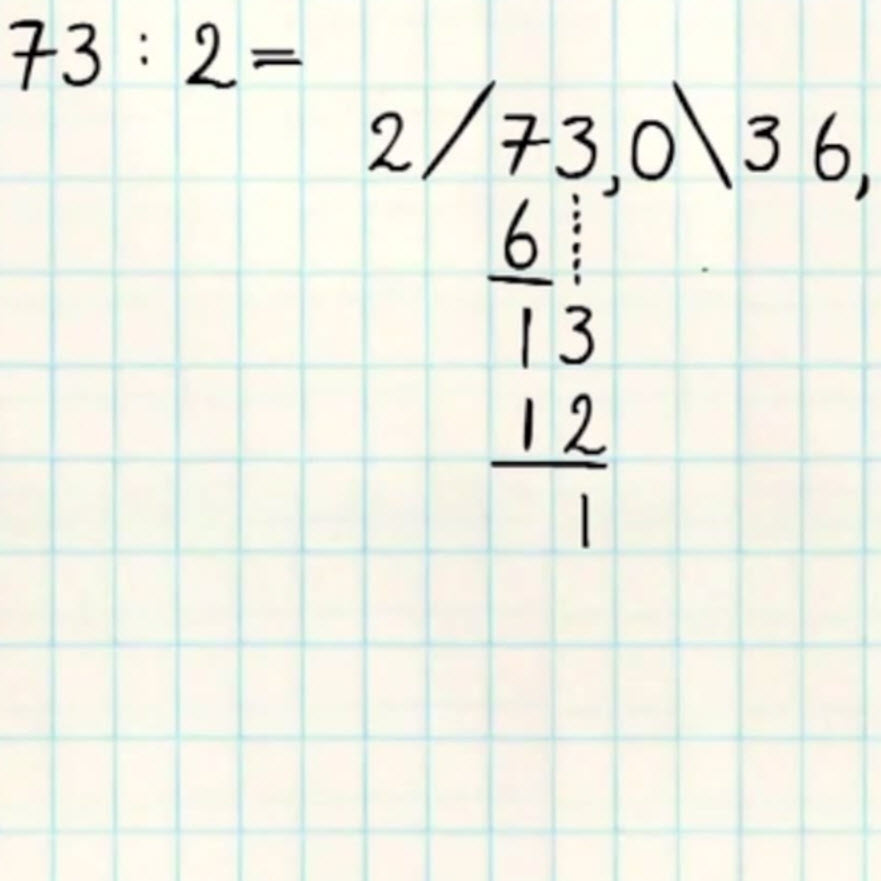 73 : 2 =
2/73,0\36,
6
13
12
1